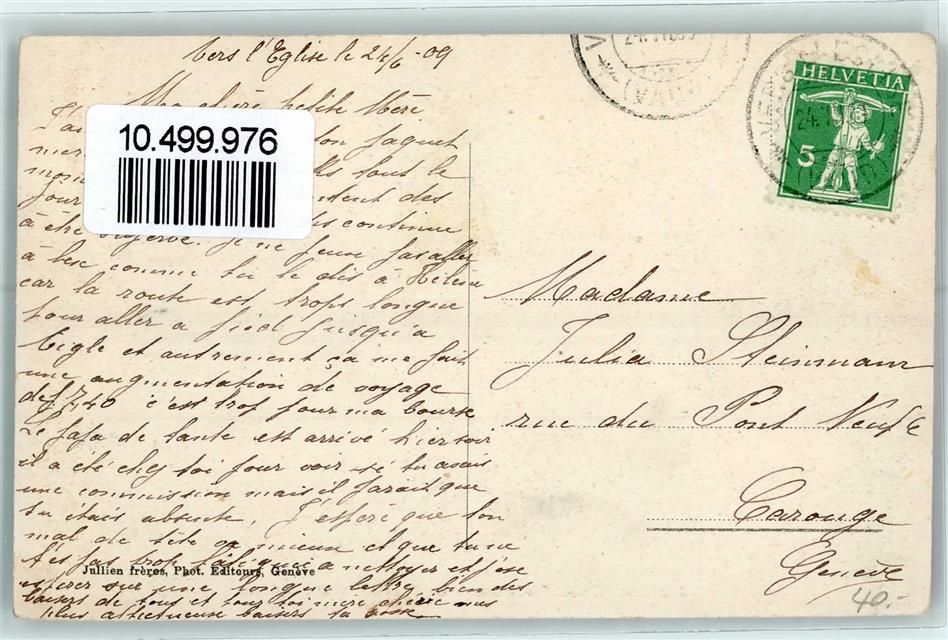 Vers l'Eglise le 24/6 -09
Ma chère petite Mère
J'ai
mer
mon tout le
jour des
continue
à être Je ne peux pas aller
à bex comme tu le dis à Hélène
car la route est trops longue
pour aller a pied jusqu'a
bigle et autrement ça me fait
une augmentation de voyage
de f 7,40 c'est trop pour ma bourse
Le papa de tante est arrivé hier soir
il a été chez toi pour voir si tu avais
une commission mais il parait que
tu étais absente. J'espère que ton
mal de tête va mieux et que tu ne
t'es pas trop fatiguée a nettoyer et j'ose
espérer sur une longue lettre, bien des
baisers de tous et pour toi mère chérie mes
plus affectueux baisers ta
Jullien frères, Phot. Editeurs, Genève
10.499.976
HELVETIA
5
Madame
Julia Steinmann
rue du Pont Neuf 6
Carouge
Genève
40.-